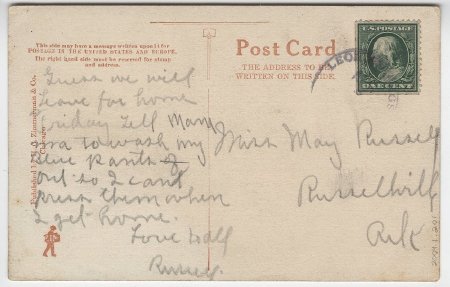 This side may have a message written upon it for
POSTAGE IN THE UNITED STATES AND EUROPE.
The right hand side must be reserved for stamp
and address.
Post Card
THE ADDRESS TO BE
WRITTEN ON THIS SIDE.
U.S. POSTAGE
ONE CENT
Guess we will
Leave for home
Friday Tell Mam
ma to wash my
blue pants
out so I can
press them when
I get home.
Love to all
Miss May Russell
Russellvill
Ark
Published by H. G. Zimmerman & Co.
Chicago